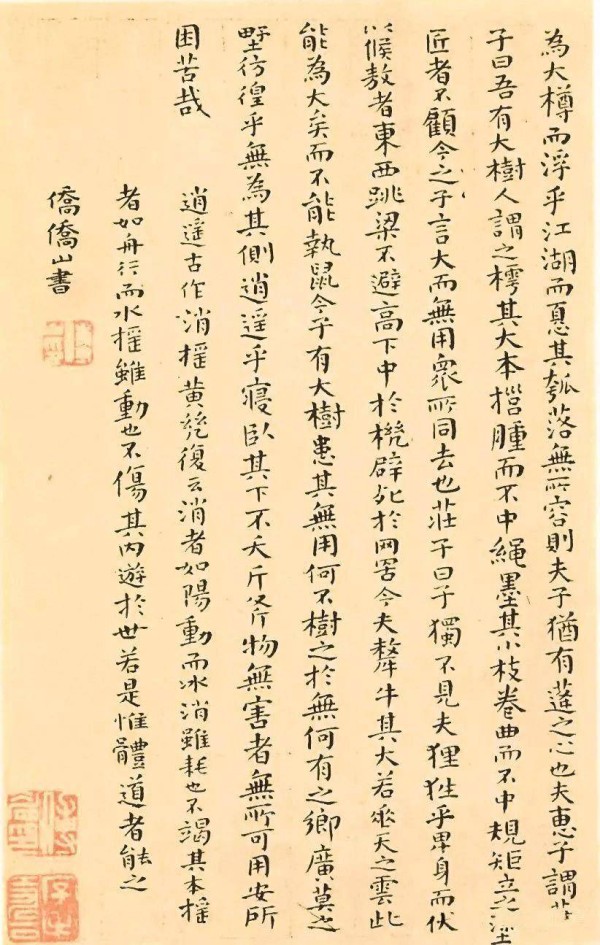 為大樽而浮乎江湖而憂其瓠落無所容則夫子猶有蓬之心也夫惠子謂莊
子曰吾有大樹人謂之樗其大本擁腫而不中繩墨其小枝卷曲而不中規矩立之塗
匠者不顧今之子言大而無用衆所同去也莊子曰子獨不見夫狸狌乎卑身而伏
以候敖者東西跳梁不避高下中於機辟死於网罟今夫斄牛其大若垂天之雲此
能為大矣而不能執鼠今子有大樹患其無用何不樹之於無何有之鄉廣莫之
野彷徨乎無為其側逍遥乎寢臥其下不夭斤斧物無害者無所可用安所
困苦哉
逍遥古作消摇黄幾復云消者如陽動而冰消雖耗也不竭其本摇
者如舟行而水摇雖動也不傷其内遊於世若是惟體道者能之
僑僑山書